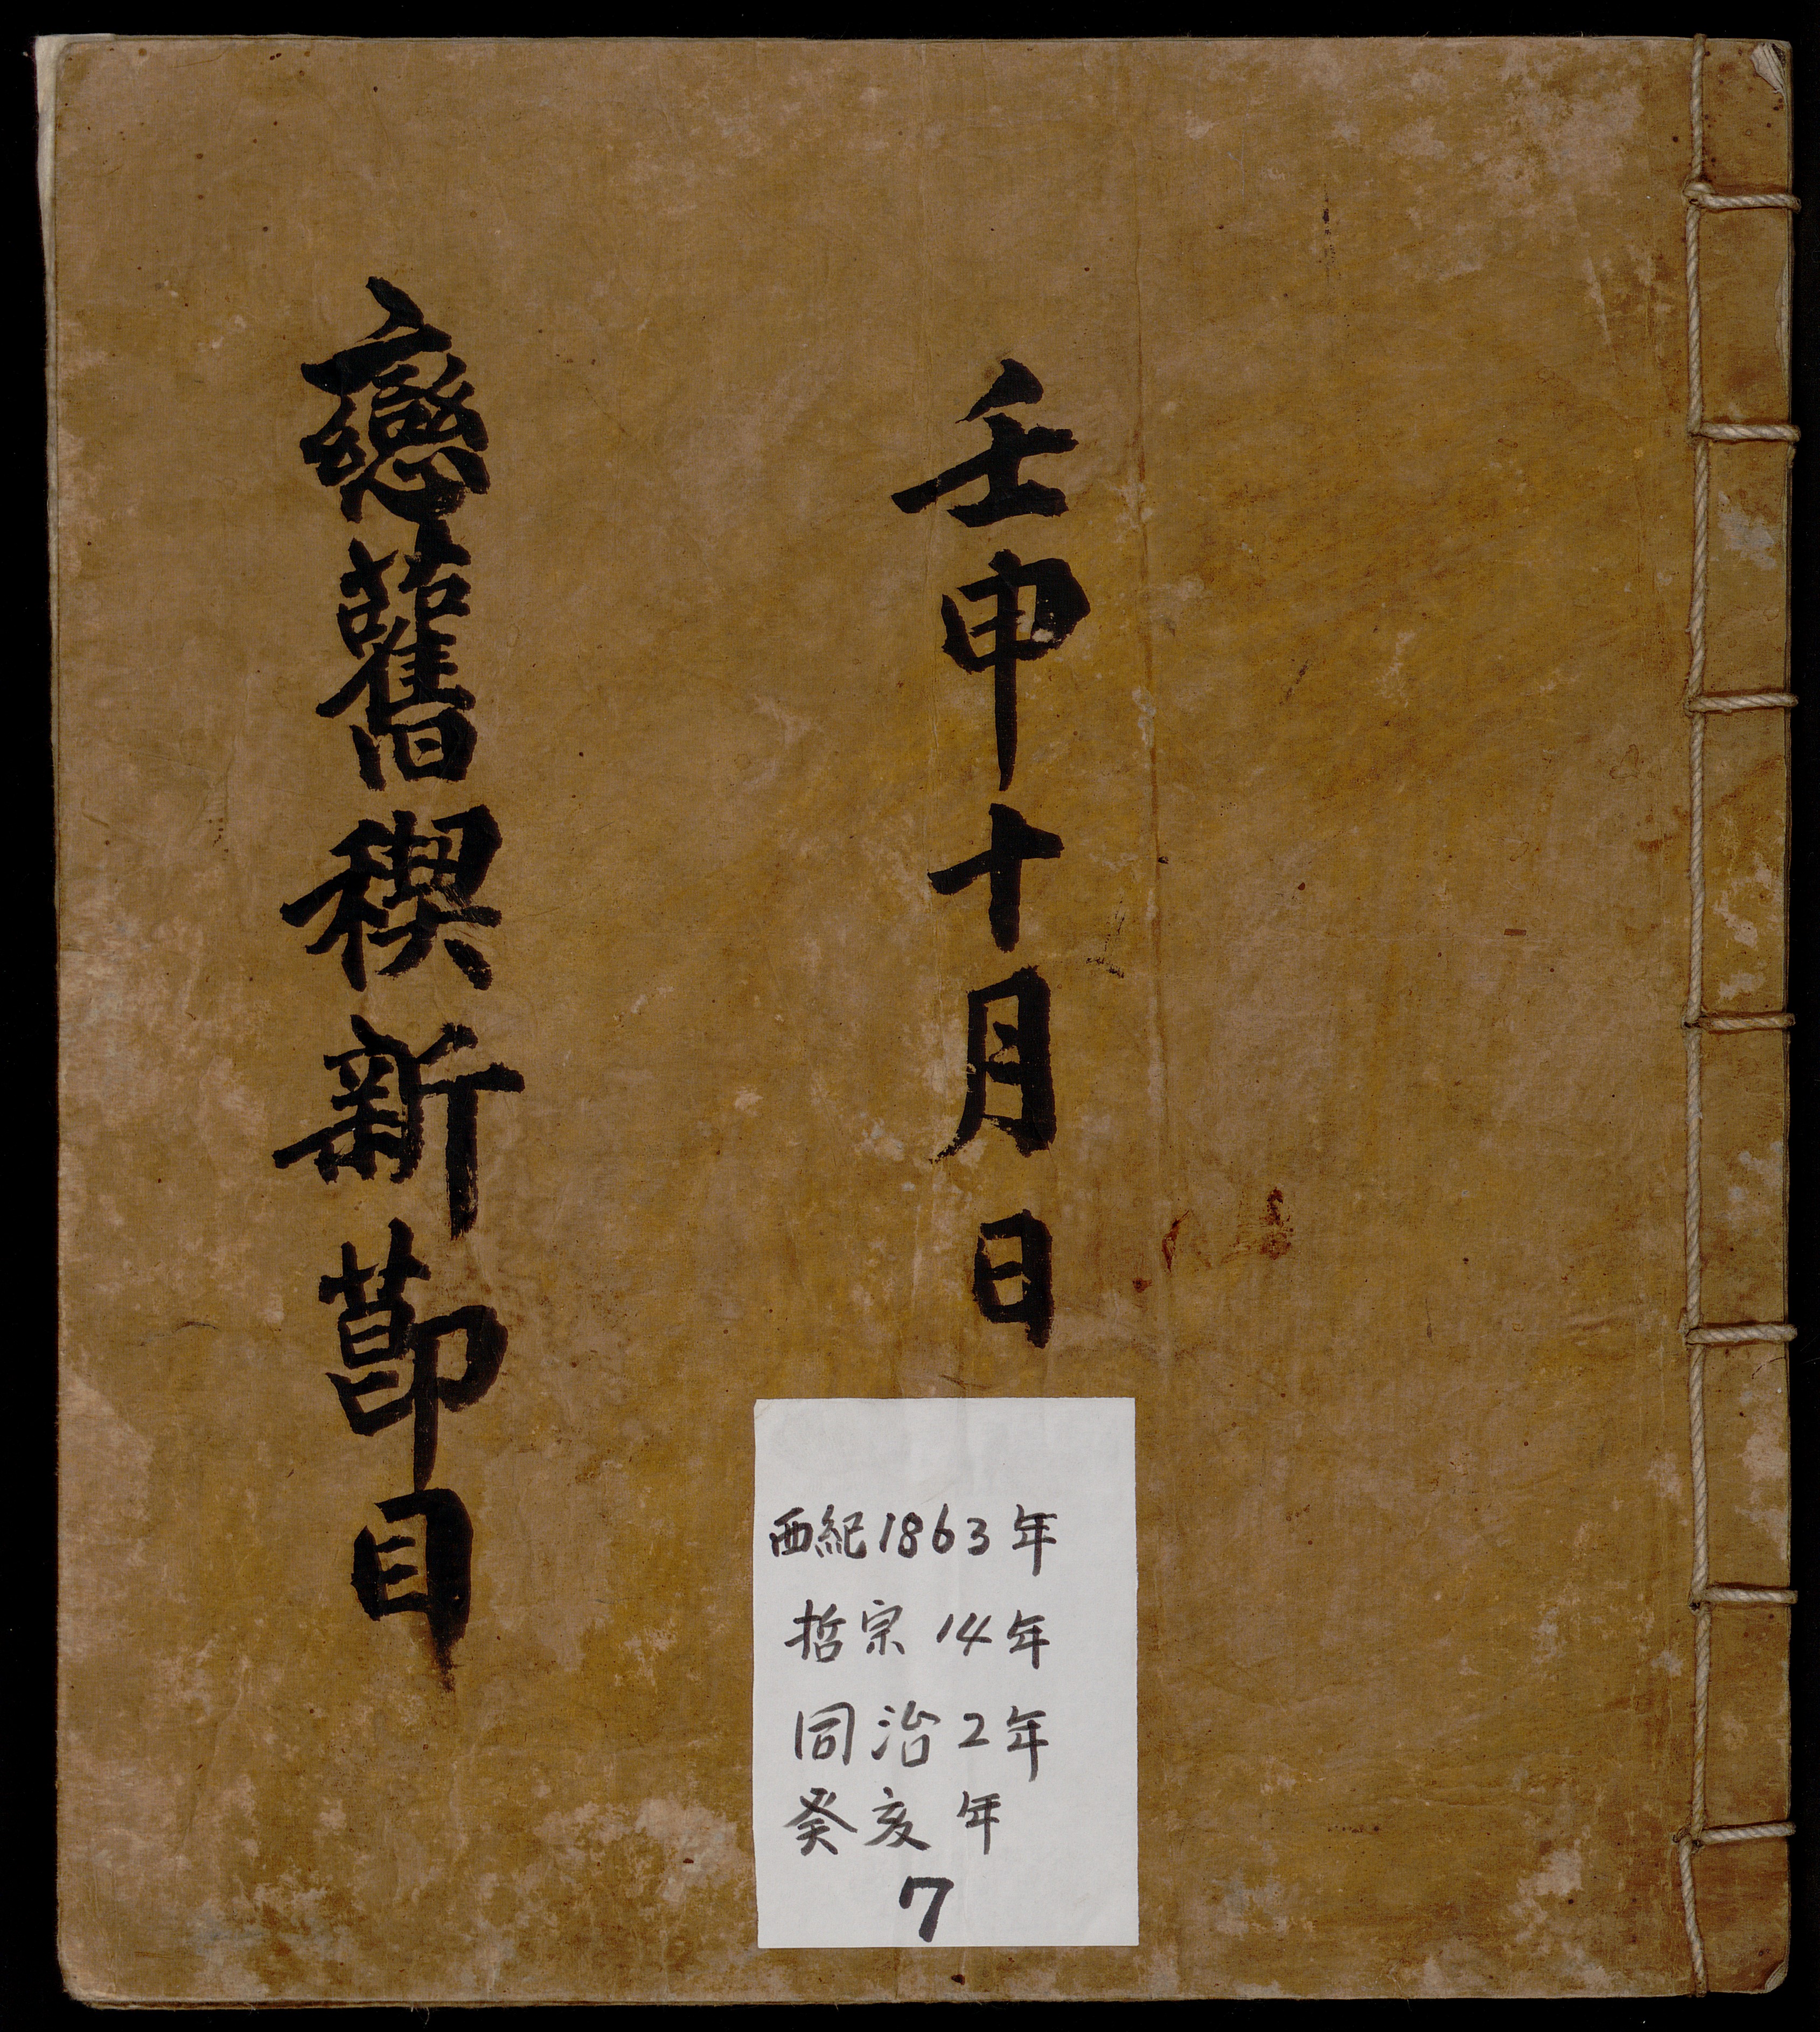 壬申十月日
戀舊稧新節目
西紀1863年
哲宗14年
同治2年
癸亥年
7